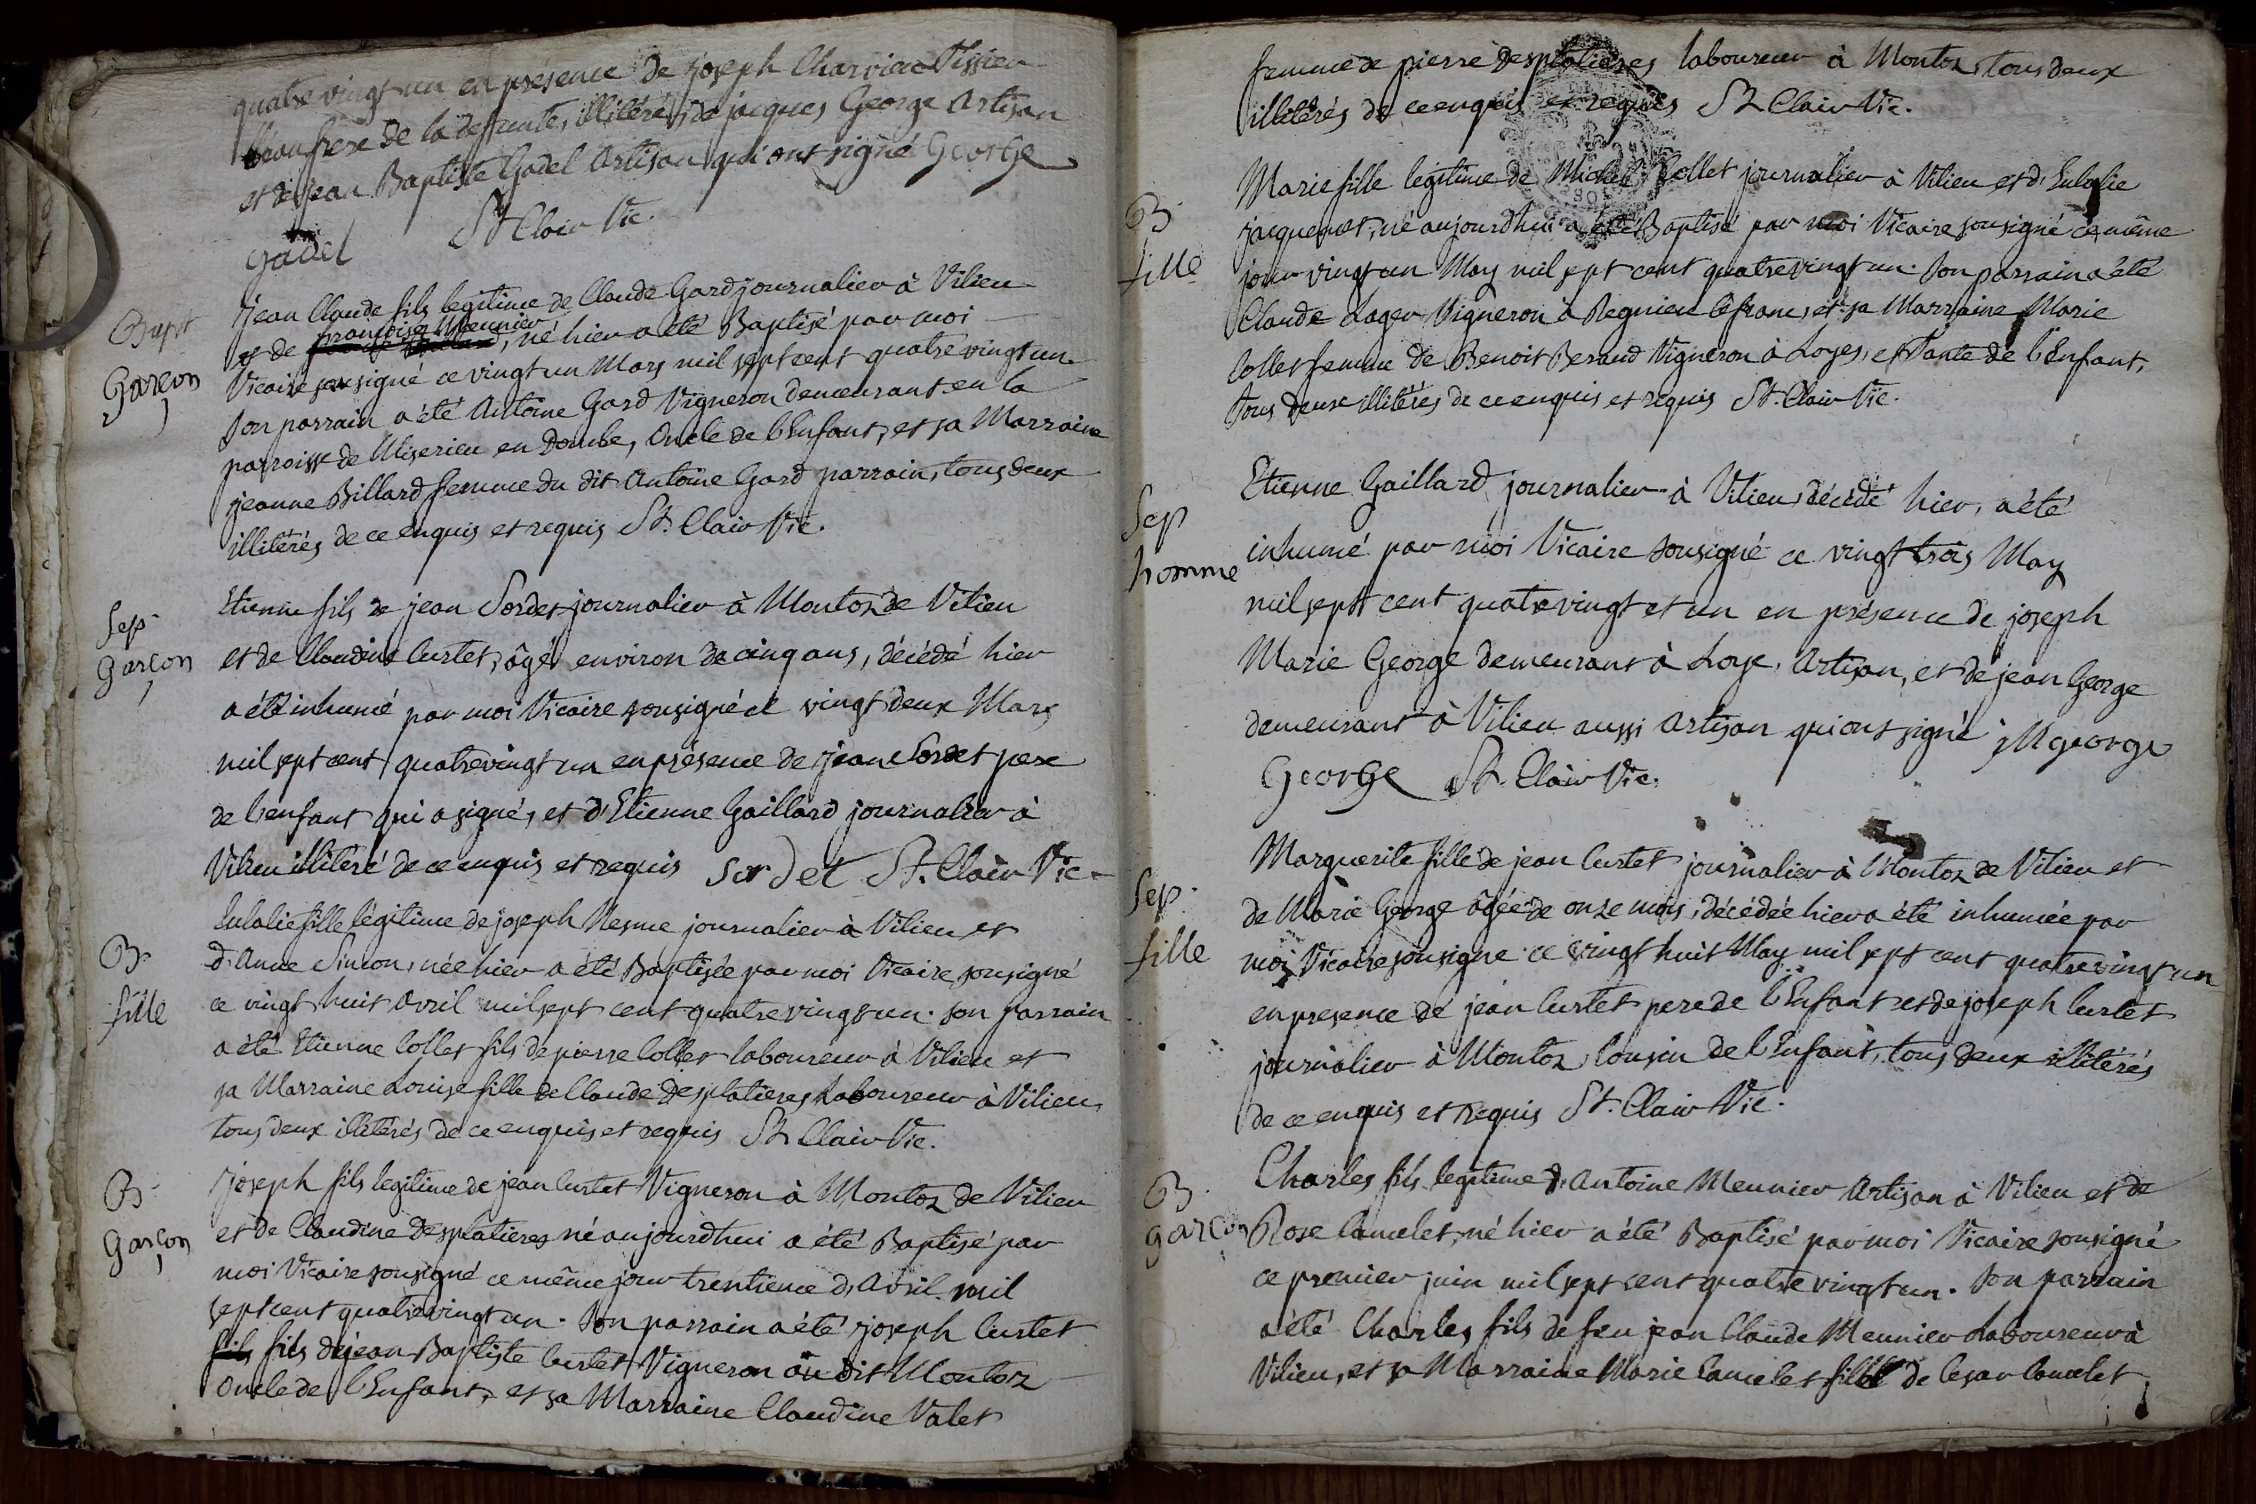 quatre vingt un en présence de joseph Charvieu Tissieu
beaufrere de la defunte, illitéré, de jacques George Artisan
et de jean Baptiste Gadel Artisan qui ont signé George
Gadel St Clair Vic.
Bapt
Garçon
jean Claude fils legitime de Claude Gard journalier à Vilieu
et de françoise Meunier, né hier a été Baptisé par moi
Vicaire sousigné ce vingt un Mars mil sept cent quatre vingt un.
Son parrain a été Antoine Gard Vigneron demeurant en la
parroisse de Miserieu en Dombe, Oncle de l'Enfant, et sa Marraine
jeanne Billard femme du dit Antoine Gard parrain, tous deux
illitérés de ce enquis et requis St. Clair Vic.
Sep.
Garçon
Etienne fils de jean Sordet journalier à Montoz de Vilieu
et de Claudine Curtet, âgé environ de cinq ans, décédé hier
a été inhumé par moi Vicaire sousigné ce vingt deux Mars
mil sept cent quatrevingt un en présence de jean Sordet pere
de l'enfant qui a signé, et d'Etienne Gaillard journalier à
Vilieu illitéré de ce enquis et requis Sordet St. Clair Vic
B.
fille
Eulalie fille légitime de joseph Nesme journalier à Vilieu et
d'Anne Simon, née hier a été Baptisée par moi Vicaire sousigné
ce vingt huit Avril mil sept cent quatre vingt un. son parrain
a été Etienne Collet fils de pierre Collet laboureur à Vilieu et
sa Marraine Louise fille de Claude Desplatieres Laboureur à Vilieu,
tous deux illitérés de ce enquis et requis St Clair Vic.
B.
Garçon
joseph fils legitime de jean Curtet Vigneron à Montoz de Vilieu
et de Claudine Desplatieres né aujourdhui a été Baptisé par
moi Vicaire sousigné ce même jour trentieme d'Avril mil
sept cent quatrevingt un. Son parrain a été joseph Curtet
fils fils de jean Baptiste Curtet Vigneron au dit Montoz
Oncle de l'Enfant, et sa Marraine Claudine Valet
femme de pierre Desplatieres laboureur à Montoz, tous deux
illitérés de ce enquis et requis St Clair Vic.
B.
fille
Marie fille légitime de Michel Collet journalier à Vilieu et d'Eulalie
jacquemet, né aujourdhui a été Baptisé par moi Vicaire sousigné ce même
jour vingt un May mil sept cent quatrevingt un. Son parrain a été
Claude Lager Vigneron à Regnieu le franc, et sa Marraine Marie
Collet femme de Benoit Beraud Vigneron à Loyes, et Tante de l'Enfant,
tous deux illitérés de ce enquis et requis St. Clair Vic.
Sep
homme
Etienne Gaillard journalier à Vilieu, décédé hier, a été
inhumé par moi Vicaire sousigné ce vingt trois May
mil sept cent quatrevingt et un en présence de joseph
Marie George demeurant à Loye, Artisan, et de jean George
demeurant à Vilieu aussi Artisan qui ont signé j M george
George St. Clair Vic.
Sep.
fille
Marguerite fille de jean Curtet journalier à Montoz de Vilieu et
de Marie George âgée de onze mois, décédée hier a été inhumée par
moi Vicaire sousigné ce vingt huit May mil sept cent quatre vingt un
en presence de jean Curtet pere de l'Enfant et de joseph Curtet
journalier à Montoz, Cousin de l'Enfant, tous deux illitérés
de ce enquis et requis St. Clair Vic.
B.
garçon
Charles fils legitime d'Antoine Meunier Artisan à Vilieu et de
Rose Camelet, né hier a été Baptisé par moi Vicaire sousigné
ce premier juin mil sept cent quatre vingt un. Son parrain
a été Charles fils de feu jean Claude Meunier Laboureur à
Vilieu, et sa Marraine Marie Camelet fille de Cesar Camelet